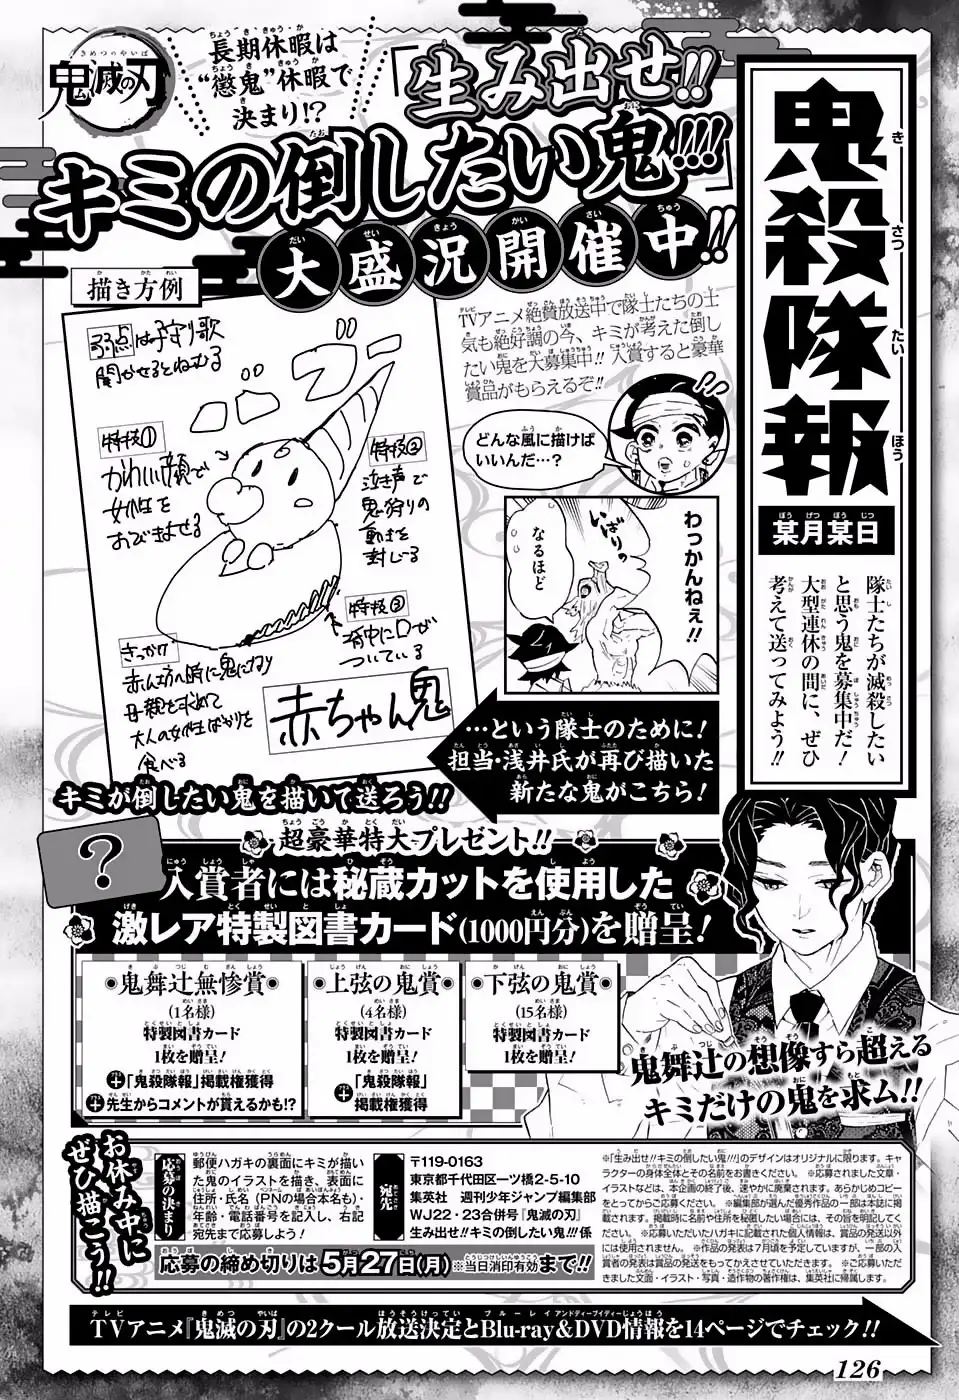 鬼殺隊報
某月某日
隊士たちが滅殺したい
と思う鬼を募集中だ!
大型連休の間に、ぜひ
考えて送ってみよう!!
鬼滅の刃
長期休暇は
“懲鬼”休暇で
決まり!?
「生み出せ!!
キミの倒したい鬼!!!」
大盛況開催中!!
TVアニメ絶賛放送中で隊士たちの士
気も絶好調の今、キミが考えた倒し
たい鬼を大募集中!!入賞すると豪華
賞品がもらえるぞ!!
どんな風に描けば
いいんだ…?
わっかんねぇ!!
いばりの
なるほど
描き方例
弱点は子守り歌
聞かせるとねむる
特技①
かわいい顔で
女性を
おびきよせる
特技②
泣き声で
鬼狩りの
動きを
封じる
特技③
背中に口が
ついている
きっかけ
赤ん坊の時に鬼になり
母親を求めて
大人の女性ばかりを
食べる
赤ちゃん鬼
…という隊士のために!
担当・浅井氏が再び描いた
新たな鬼がこちら!
キミが倒したい鬼を描いて送ろう!!
?
超豪華特大プレゼント!!
入賞者には秘蔵カットを使用した
激レア特製図書カード(1000円分)を贈呈!
鬼舞辻無惨賞
(1名様)
特製図書カード
1枚を贈呈!
+「鬼殺隊報」掲載権獲得
+先生からコメントが貰えるかも!?
上弦の鬼賞
(4名様)
特製図書カード
1枚を贈呈!
+「鬼殺隊報」
掲載権獲得
下弦の鬼賞
(15名様)
特製図書カード
1枚を贈呈!
鬼舞辻の想像すら超える
キミだけの鬼を求ム!!
お休み中に
ぜひ描こう!!
応募の決まり
郵便ハガキの裏面にキミが描い
た鬼のイラストを描き、表面に
住所・氏名(PNの場合本名も)・
年齢・電話番号を記入し、右記
宛先まで応募しよう!
宛先
〒119-0163
東京都千代田区一ツ橋2-5-10
集英社 週刊少年ジャンプ編集部
WJ22・23合併号『鬼滅の刃』
生み出せ!!キミの倒したい鬼!!!係
応募の締め切りは5月27日(月)※当日消印有効まで!!
※「生み出せ!!キミの倒したい鬼!!!」のデザインはオリジナルに限ります。キャ
ラクターの身体全体とその名前をお書きください。※応募されました文章・
イラストなどは、本企画の終了後、速やかに廃棄されます。あらかじめコピー
をとってからご応募ください。※編集部が選んだ優秀作品の一部は本誌に掲
載されます。掲載時に名前や住所を秘匿したい場合には、その旨を明記してく
ださい。※応募いただいたハガキに記載された個人情報は、賞品の発送以外
には使用されません。※作品の発表は7月頃を予定していますが、一部の入
賞者の発表は賞品の発送をもってかえさせていただきます。※ご応募いただ
きました文面・イラスト・写真・造作物の著作権は、集英社に帰属します。
TVアニメ『鬼滅の刃』の2クール放送決定とBlu-ray&DVD情報を14ページでチェック!!
126